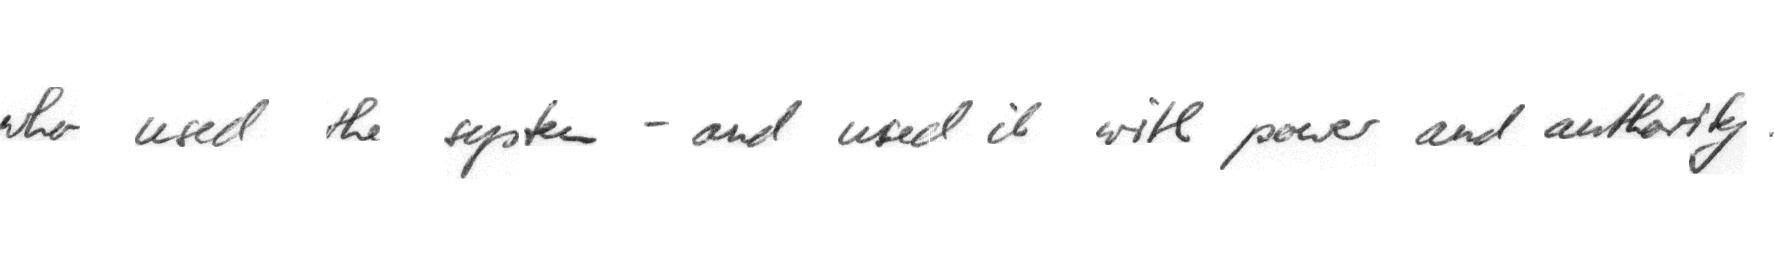 who used the system - and used it with power and authority.